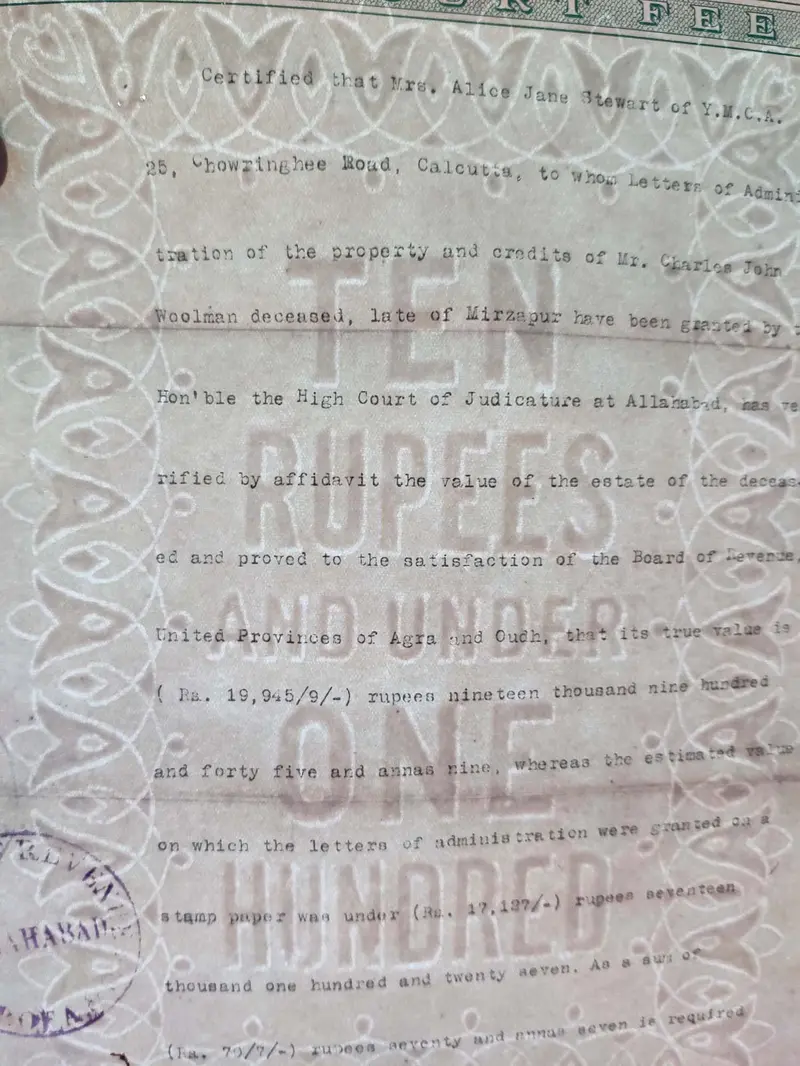 COURT FEE
Certified that Mrs. Alice Jane Stewart of Y.M.C.A.
25, Chowringhee Road, Calcutta, to whom Letters of Admini
tration of the property and credits of Mr. Charles John
Woolman deceased, late of Mirzapur have been granted by
Hon'ble the High Court of Judicature at Allahabad, has ve
rified by affidavit the value of the estate of the deceas-
ed and proved to the satisfaction of the Board of Revenue,
United Provinces of Agra and Oudh, that its true value is
( Rs. 19,945/9/-) rupees nineteen thousand nine hundred
and forty five and annas nine, whereas the estimated value
on which the letters of administration were granted on a
stamp paper was under (Rs. 17,127/-) rupees seventeen
thousand one hundred and twenty seven. As a sum of
(Rs. 70/7/-) rupees seventy and annas seven is required
TEN
RUPEES
AND UNDER
ONE
HUNDRED
REVEN
AHABAD